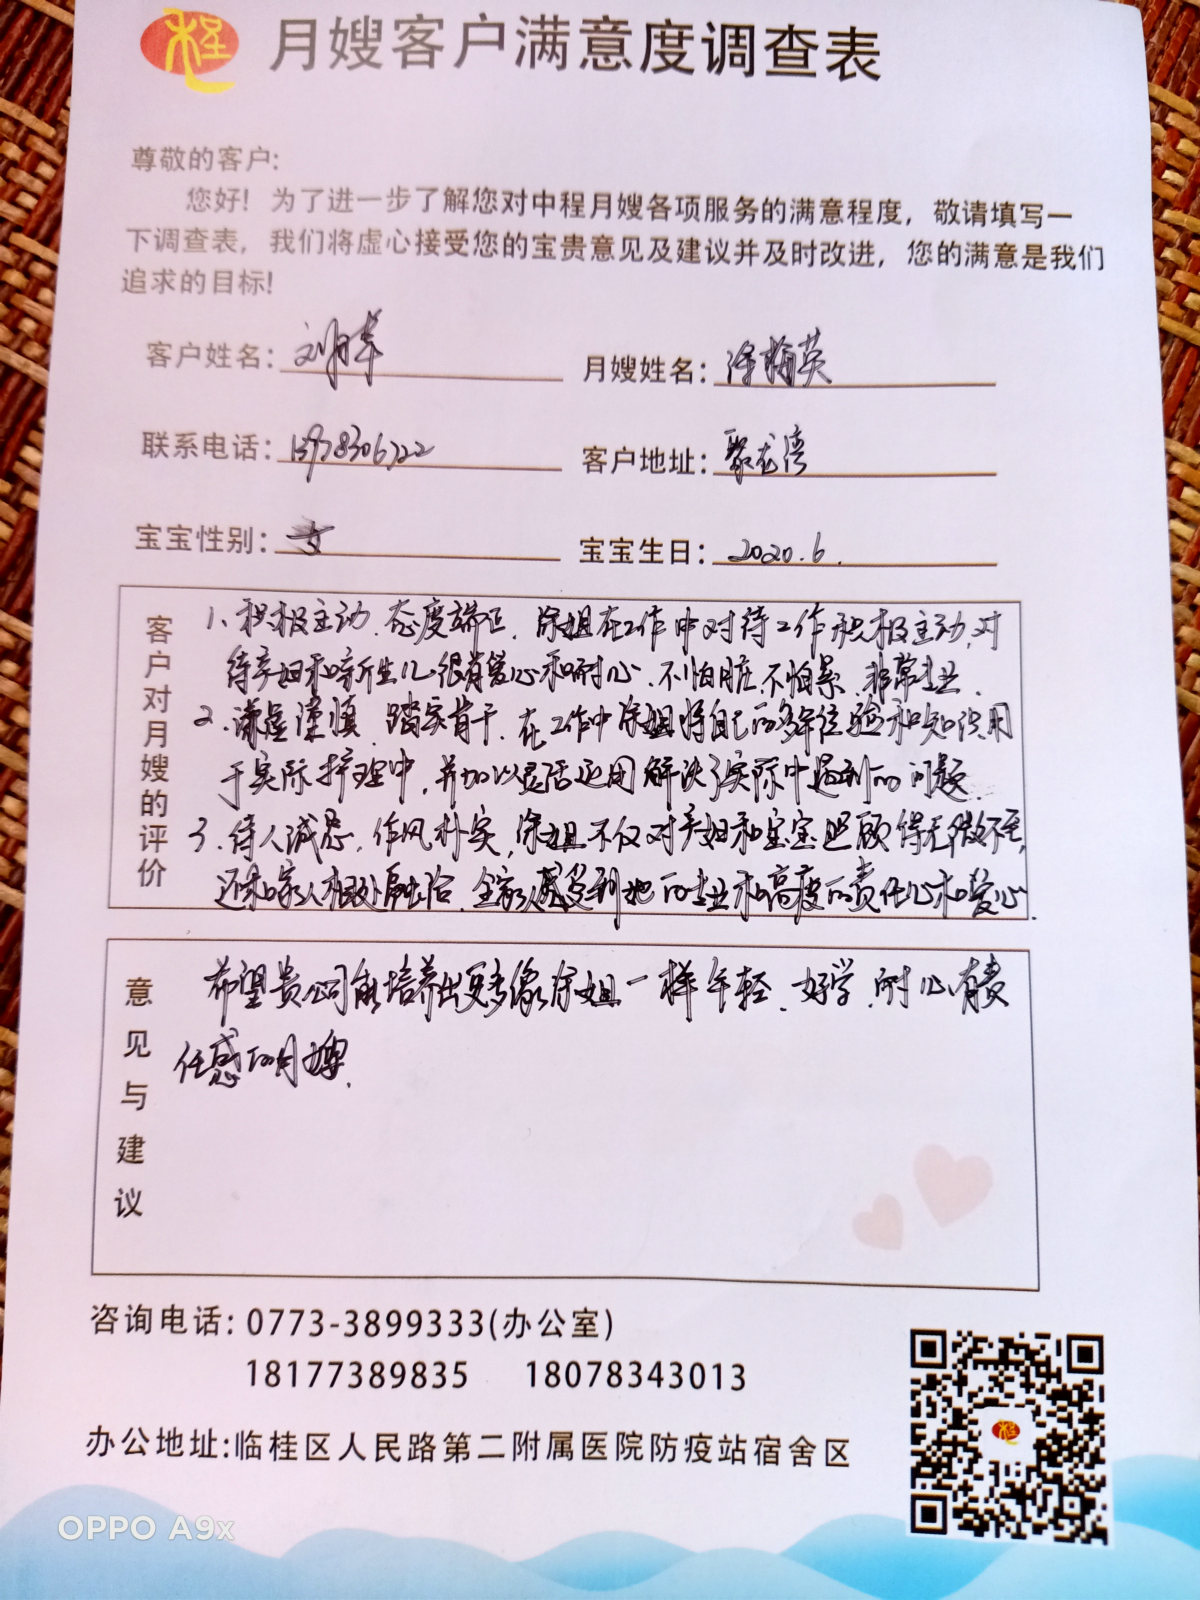 月嫂客户满意度调查表
尊敬的客户:
您好！为了进一步了解您对中程月嫂各项服务的满意程度，敬请填写一
下调查表，我们将虚心接受您的宝贵意见及建议并及时改进，您的满意是我们
追求的目标!
客户姓名: 月嫂姓名: 涂梅英
联系电话: 客户地址: 聚龙湾
宝宝性别: 女 宝宝生日: 2020.6.
客户对月嫂的评价
1、积极主动、态度端正，涂姐在工作中对待工作积极主动，对
待产妇和新生儿很有爱心和耐心、不怕脏、不怕累、非常专业.
2、谦虚谨慎、踏实肯干、在工作中涂姐将自己的多年经验和知识用
于实际护理中，并加以灵活运用解决了实际中遇到的问题.
3、待人诚恳，作风朴实，涂姐不仅对产妇和宝宝照顾得无微不至，
还和家人相处融洽、全家人感受到她的专业和高度的责任心和爱心.
意见与建议
希望贵公司能培养出更多像涂姐一样年轻、好学、耐心有责
任感的月嫂.
咨询电话: 0773-3899333(办公室)
18177389835 18078343013
办公地址:临桂区人民路第二附属医院防疫站宿舍区
OPPO A9x